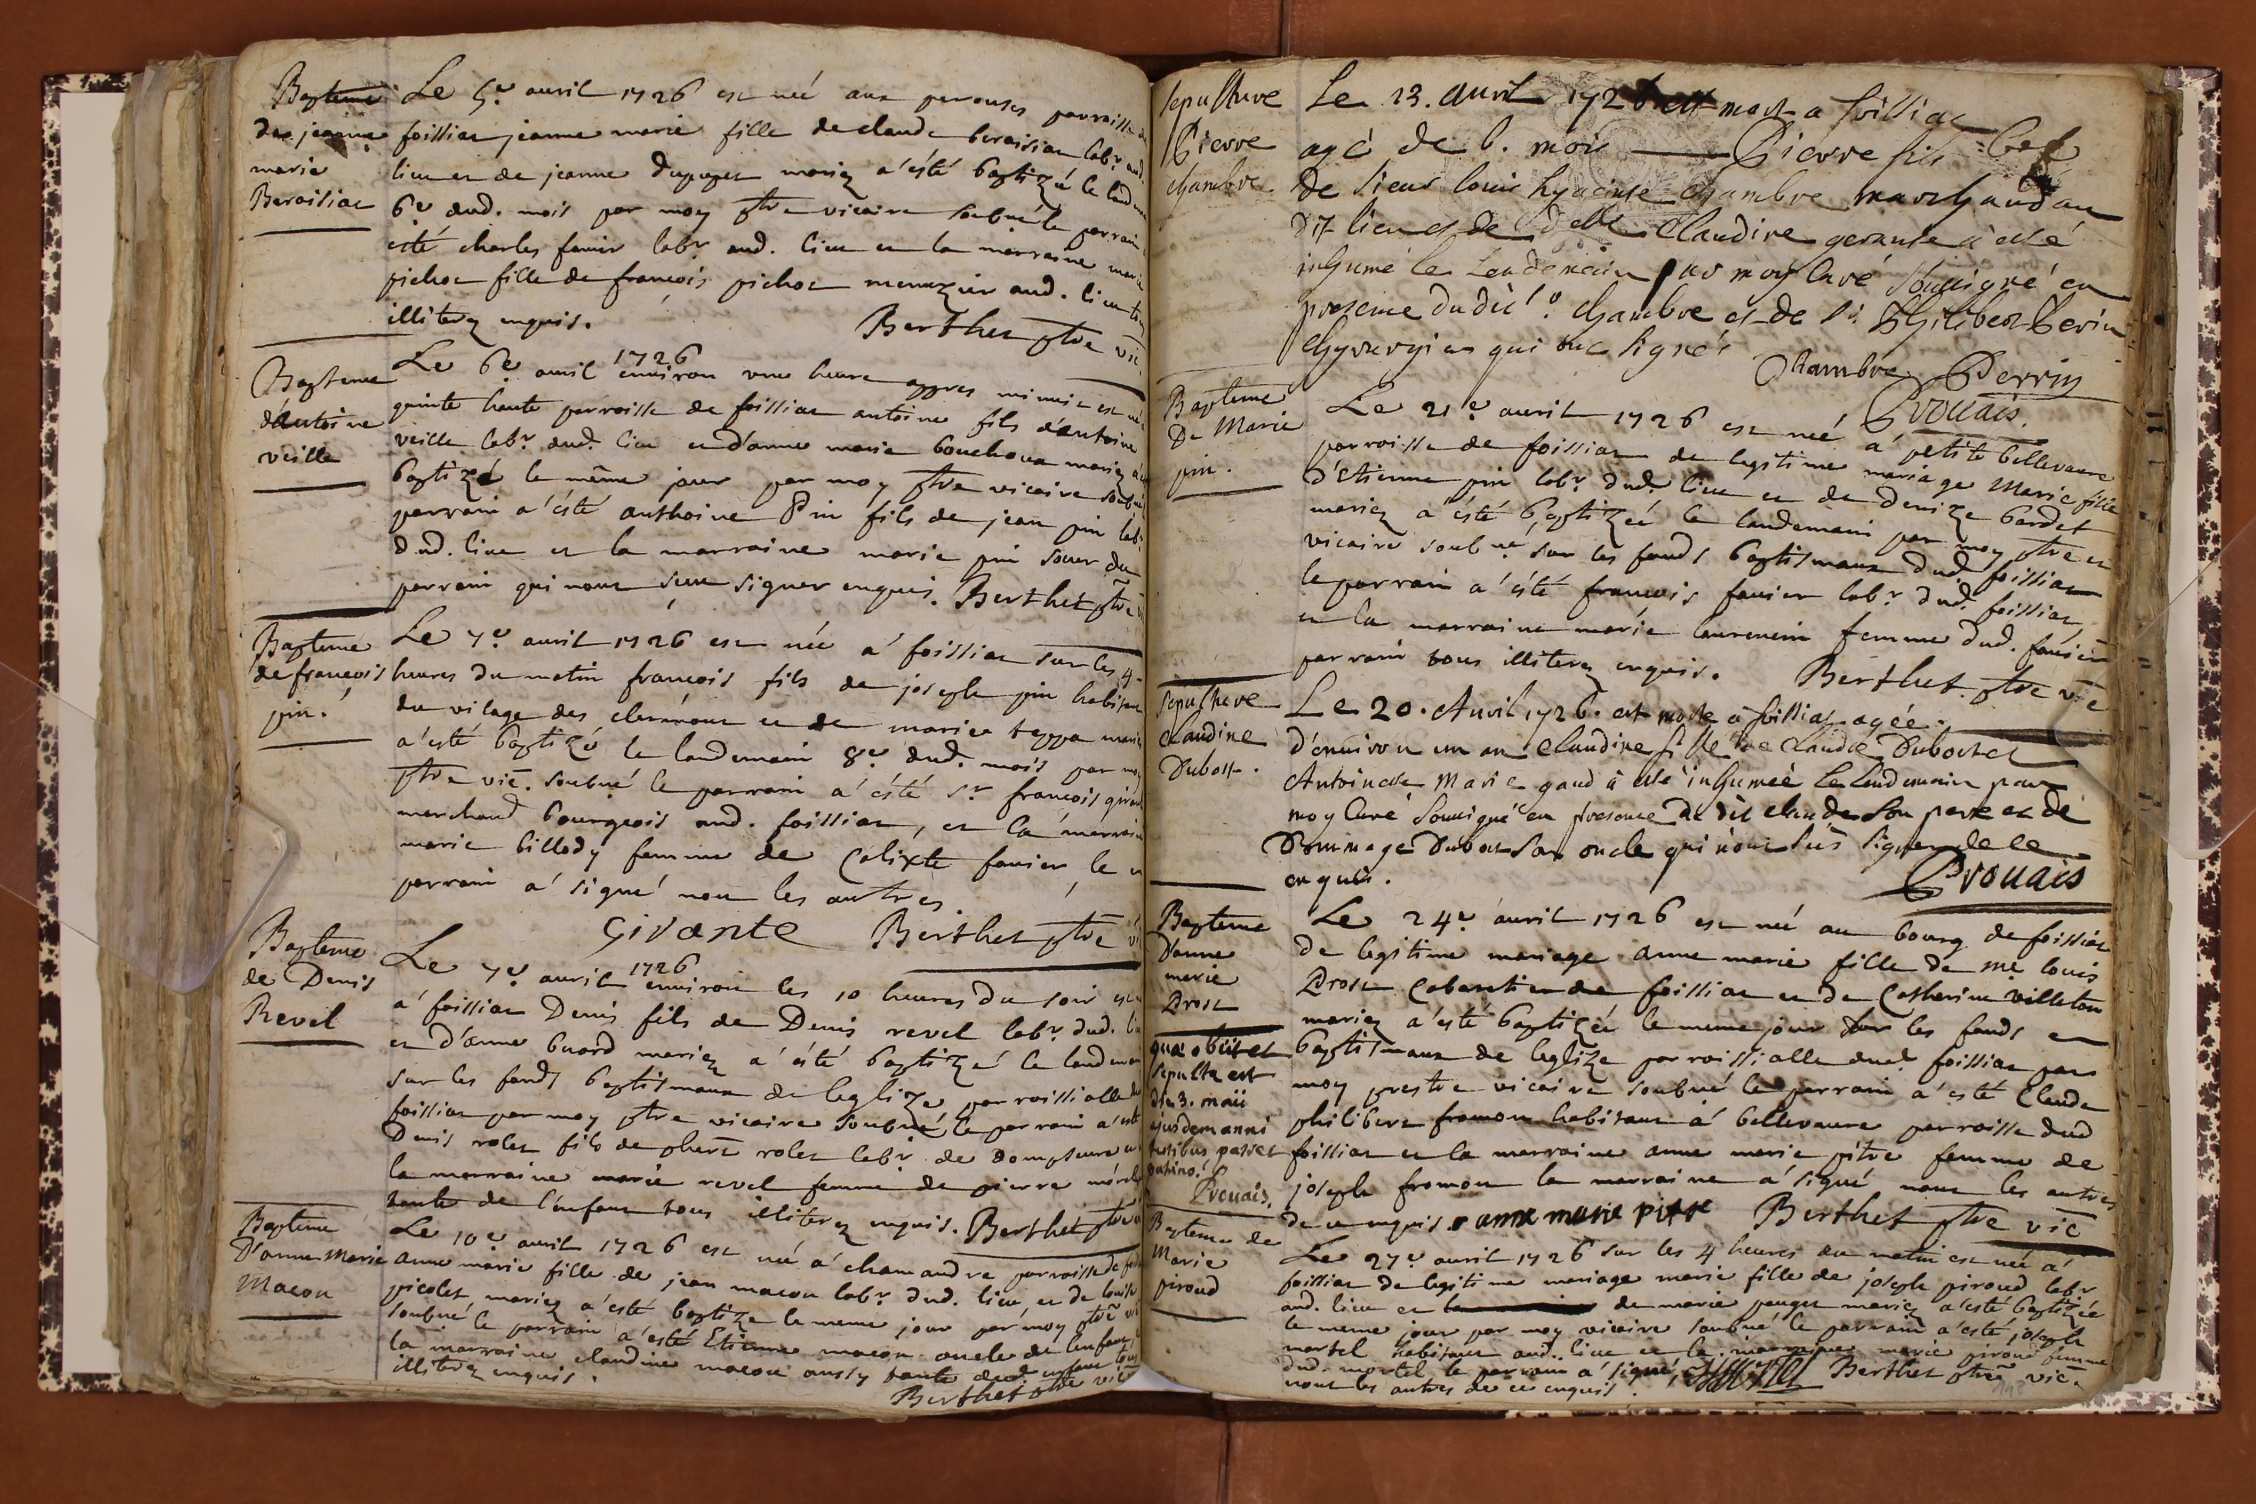 Bapteme
de jeanne
marie
Beraisiat
Le 5e. auril 1726 est née aux perouses parroisse de
foissiat jeanne marie fille de claude beraisiat labr. aud.
lieu et de jeanne dupuget mariez a'été baptizée le landem
6e dud. mois par moy ptre vicaire soubné le parrain
esté charles favier labr. aud. lieu et la marraine marie
pichot fille de francois pichot menuzier aud. lieu
illiterez enquis. Berthet ptre vic.
Bapteme
d'Antoine
veille
Le 6e auril 1726 environ une heure appres minuit est né
quinte haute parroisse de foissiat antoine fils d'antoine
veille labr. dud. lieu et d'anne marie bouchoux mariez a'
baptizé le même jour par moy ptre vicaire soubné
parrain a'été anthoine Pin fils de jean pin labr.
dud. lieu et la marraine marie pin soeur du
parrain qui n'ont sceu signer enquis. Berthet ptre
Bapteme
de francois
pin.
Le 7e auril 1726 est née a' foissiat sur les 4
heures du matin francois fils de joseph pin habitant
du vilage des clermont et de marie teppa mariez
a'esté baptizé le landemain 8e dud. mois par moy
ptre vic. soubné le parrain a'été sr. francois girant
marchand bourgeois aud. foissiat, et la marraine
marie billody femme de Calixte favier, le
parrain a' signé non les autres.
Girante Berthet ptre
Bapteme
de Denis
Revel
Le 7e auril 1726 environ les 10 heures du soir est
a' foissiat Denis fils de Denis revel labr. dud. lieu
et d'anne buard mariez a'été baptizé le landemain
sur les fonds baptismaux de leglize parroissialle dud
foissiat par moy ptre vicaire soubné le parrain a'esté
Denis rolet fils de phert rolet labr. de dompsure et
la marraine marie revel femme de pierre morel
tante de l'enfant tous illiterez enquis. Berthet ptre
Bapteme
D'anne Marie
Macon
Le 10e auril 1726 est née a' chamandre parroisse de
anne marie fille de jean macon labr. dud. lieu, et de louise
picolet mariez a'esté baptize le meme jour par moy ptre
soubné le parrain a'esté Etienne macon oncle de l'enfant
la marraine claudine macon aussy tante dud. enfant tous
illiterez enquis. Berthet ptre vic
sepulture
Pierre
chambre.
Le 23. Auril 1726 est mort a foissiat
agé de 6. mois Pierre fils
de sieur louis hyacinte chambre marchand au
dit lieu et de delle Claudine gerante a'esté
inhumé le Lendemain par moy Curé soussigné en
presence dudit sr. chambre et de sr. Philibert Perin
chyrurgien qui ont signés
Chambre Perrin
Prouais.
Bapteme
De Marie
pin.
Le 21e auril 1726 est née a' petite bellevaure
parroisse de foissiat de legitime mariage Marie fille
d'Etienne pin labr. dud. lieu et de Denize bardet
mariez a'été baptizeé le landemain par moy ptre et
vicaire soubné sur les fonds baptismaux dud. foissiat
le parrain a'été francois favier labr. dud. foissiat,
et la marraine marie laurencin femme dud. favier
parrain tous illiterez enquis. Berthet ptre vic
sepulture
claudine
Dubost.
Le 20. Auril 1726. est morte a foissiat agée
d'enuiron un an Claudine fille de Claude Dubost et
Antoinette Marie gaud a esté inhumeé le lendemain par
moy Curé soussigné en presence dudit claude son pere et de
Dommage Dubost son oncle qui n'ont sus signer de ce
enquis. Prouais
Bapteme
D'anne
marie
Prost
quæ obiit et
sepulta est
die 3. maii
ejusdem anni
testibus patre et
patrino.
Prouais.
Le 24e auril 1726 est née au bourg de foissiat
de legitime mariage anne marie fille de me louis
Prost Cabaretier de foissiat et de Catherine villeton
mariez a'esté baptizée le meme jour sur les fonds
baptismaux de leglize parroissialle dud. foissiat par
moy prestre vicaire soubné le parrain a'esté Claude
philibert fromon habitant a' bellevaure parroisse dud
foissiat et la marraine anne marie pitre femme de
joseph fromon la marraine a' signé non les autres
de ce enquis. anne marie pitre Berthet ptre vic
Bapteme de
Marie
piroud
Le 27e auril 1726 sur les 4 heures du matin est née a'
foissiat de legitime mariage marie fille de joseph piroud labr
aud. lieu et de marie pauget mariez a'esté baptizée
le meme jour par moy vicaire soubné le parrain a'esté joseph
martel habitant aud. lieu et la marraine marie piroud femme
dud. martel le parrain a' signé, JMartel Berthet ptre vic.
nont les autres de ce enquis.